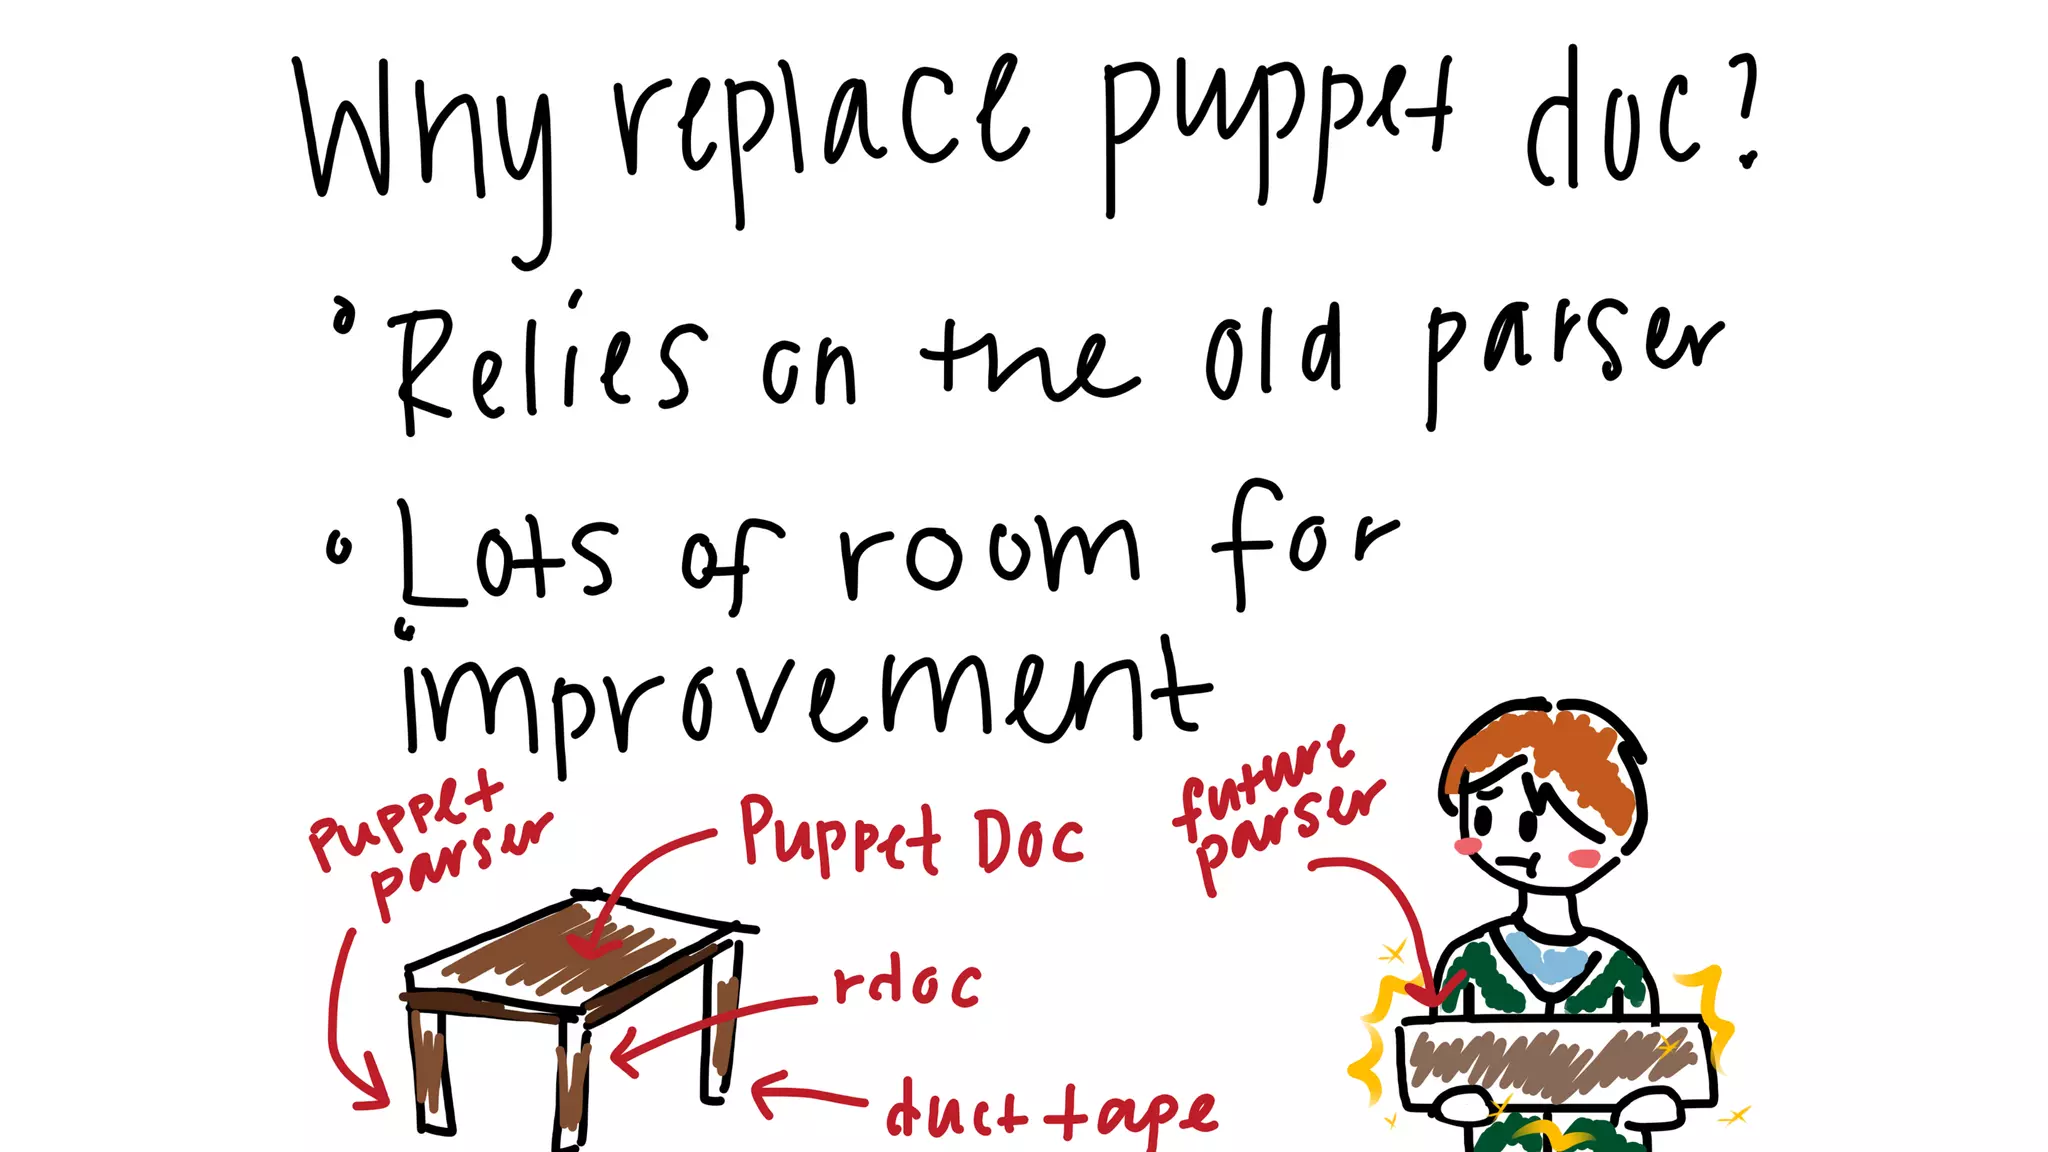 Why replace puppet doc?
Relies on the old parser
Lots of room for
improvement
puppet
parser
Puppet Doc
future
parser
rdoc
duct tape